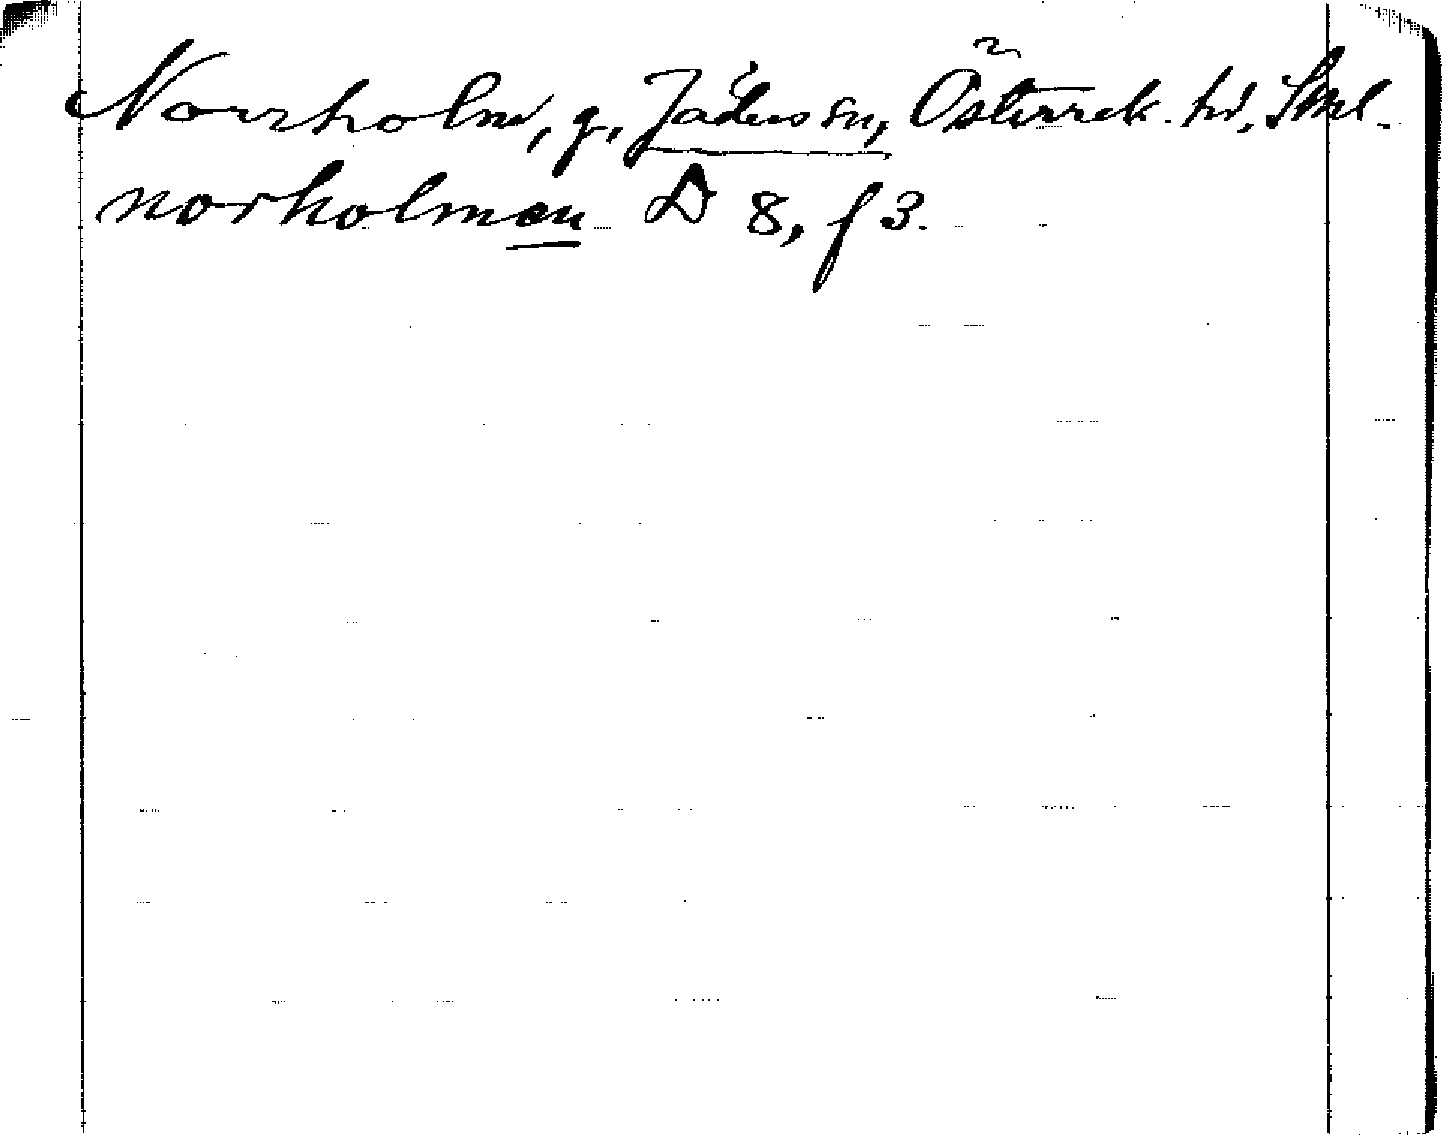 Norrholm, g, Jäders sn, Österrek. hd, Sml.
norholmen D 8, f 3.